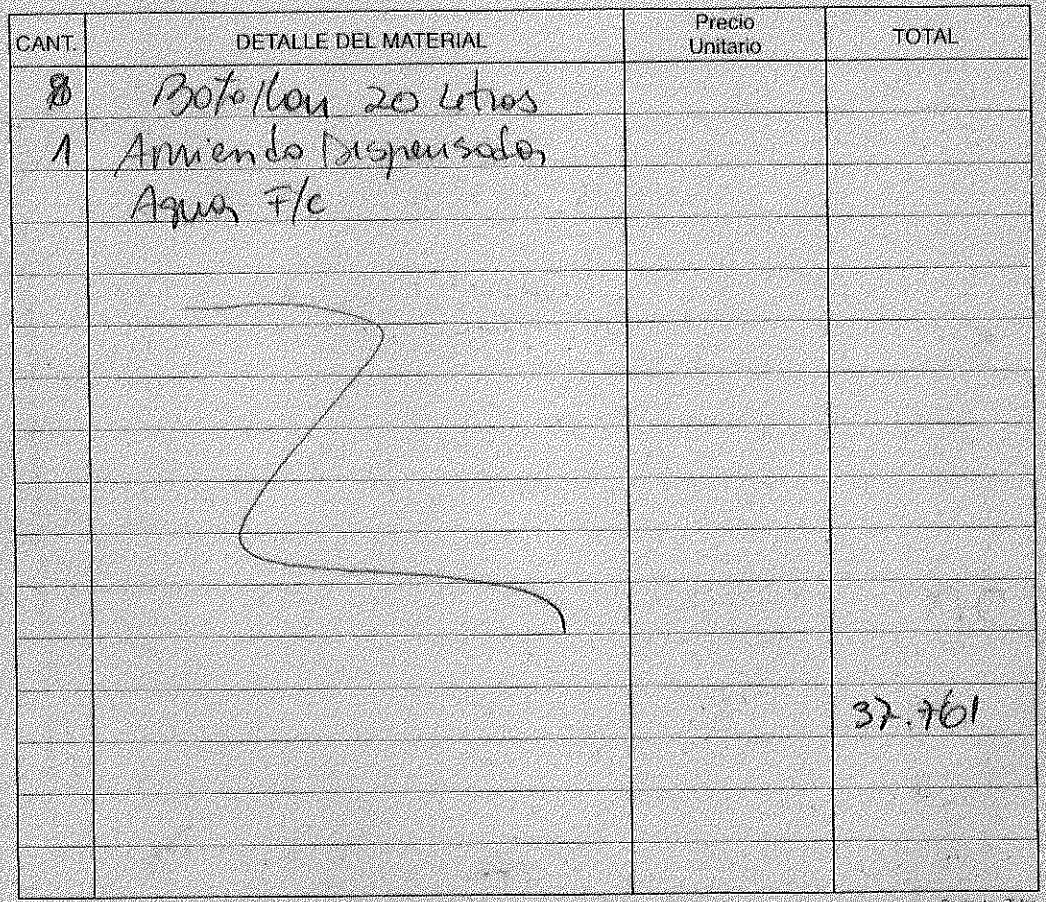 CANT. DETALLE DEL MATERIAL Precio Unitario TOTAL
8 Botellon 20 Letros
1 Arriendo Dispensador
Agua F/c
37.761